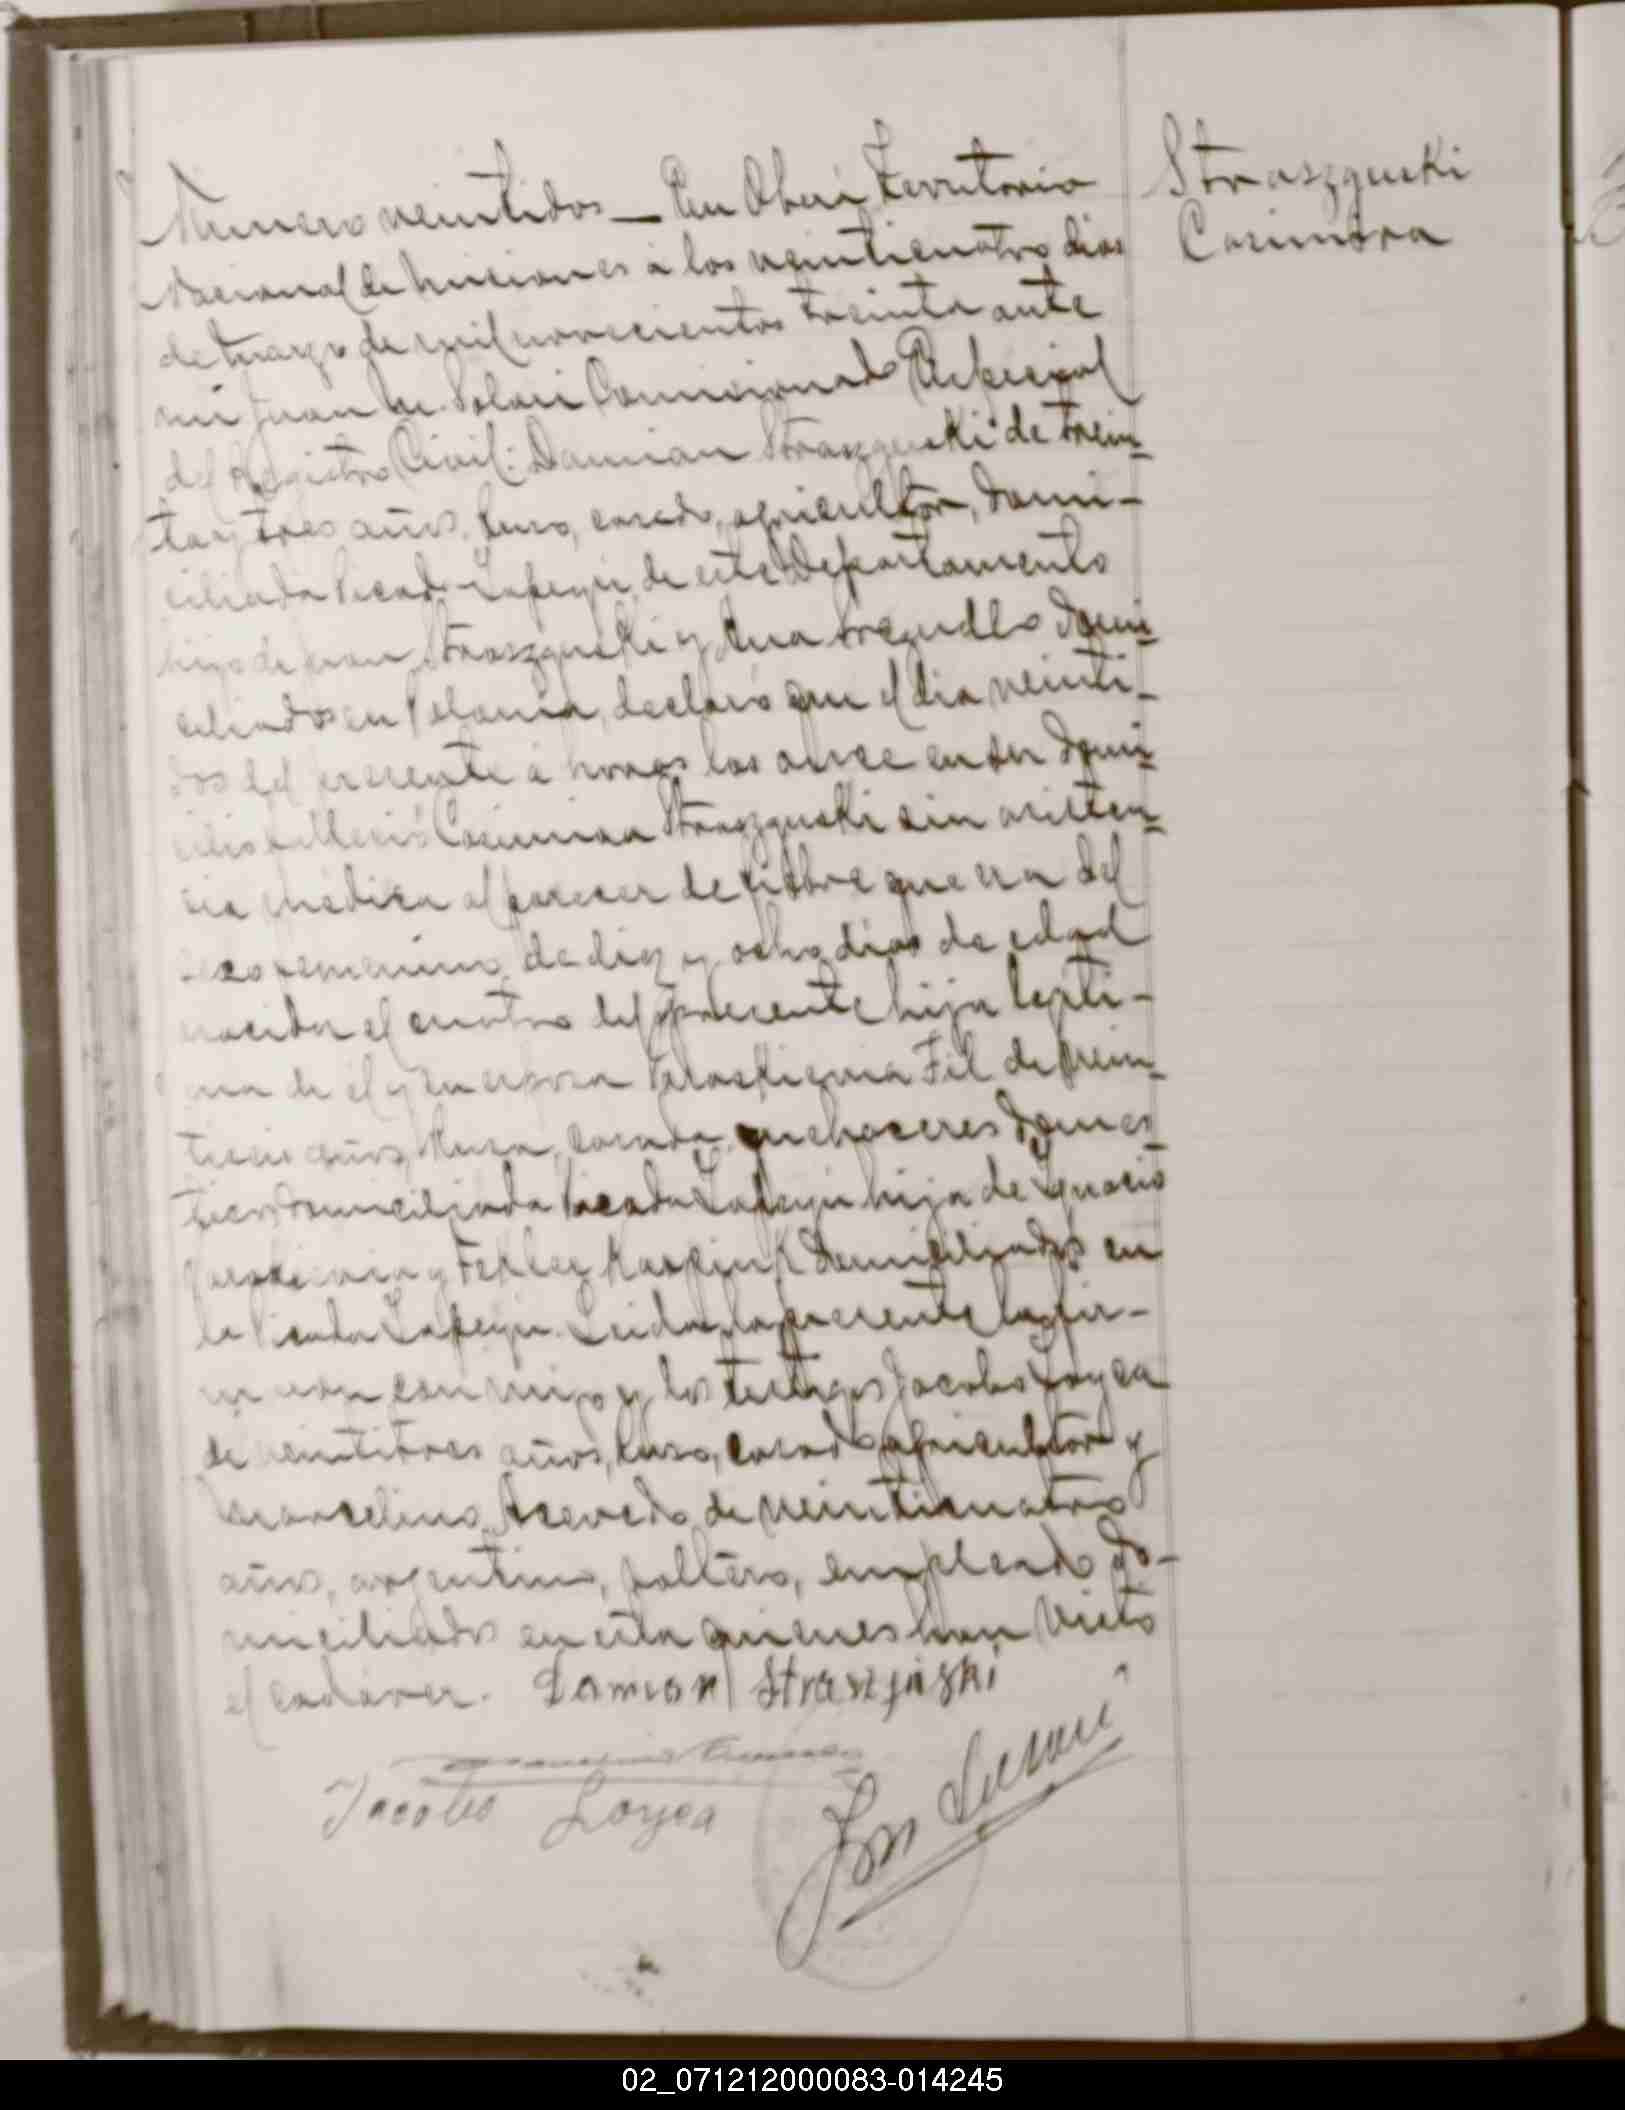 Numero veintidos — En Oberá Territorio
Nacional de Misiones a los veinticuatro dias
de Marzo de mil novecientos treinta ante
mi Juan M. Solari Comisionado Especial
del Registro Civil: Damian Straszgueki de trein-
ta y tres años, Ruso, casado, agricultor, domi-
ciliado Picada Yapeyu de este Departamento
hijo de Straszgueki y Ana domi-
ciliados en Polonia, declaró que el dia veinti-
dos del presente á horas las once en su domi-
cilio falleció Casimira Straszgueki sin asisten-
cia médica al parecer de fiebre que era del
sexo femenino, de diez y ocho dias de edad
nacida el cuatro del presente hija legiti-
ma de el y su esposa Fil de
años, Rusa, casada, quehaceres domes-
ticos domiciliada Picada Yapeyu hija de Ygnacio
y domiciliados en
la Picada Yapeyu. Leida la presente la fir-
maron conmigo y los testigos Jacobo Loyca
de veintitres años, Ruso, casado agricultor y
Marcelino Acevedo de veinticuatro
años, argentino, soltero, empleado do-
miciliados en esta quienes han visto
el cadáver. Damian Straszjński
Jacobo Loyca
Straszgueki
Casimira
02_071212000083-014245